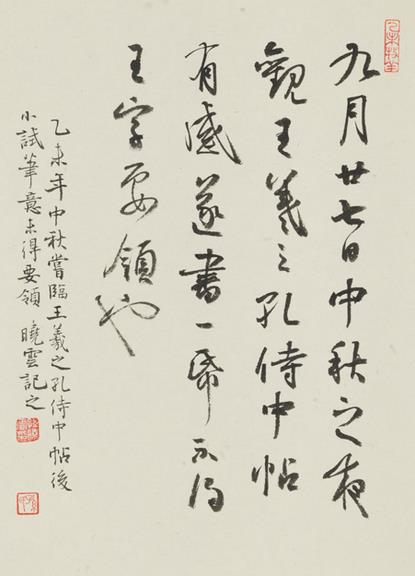 九月廿七日中秋之夜
觀王羲之孔侍中帖
有感遂書一紙不得
王字要領也
乙未年中秋嘗臨王羲之孔侍中帖後
小試筆意未得要領 曉雲記之